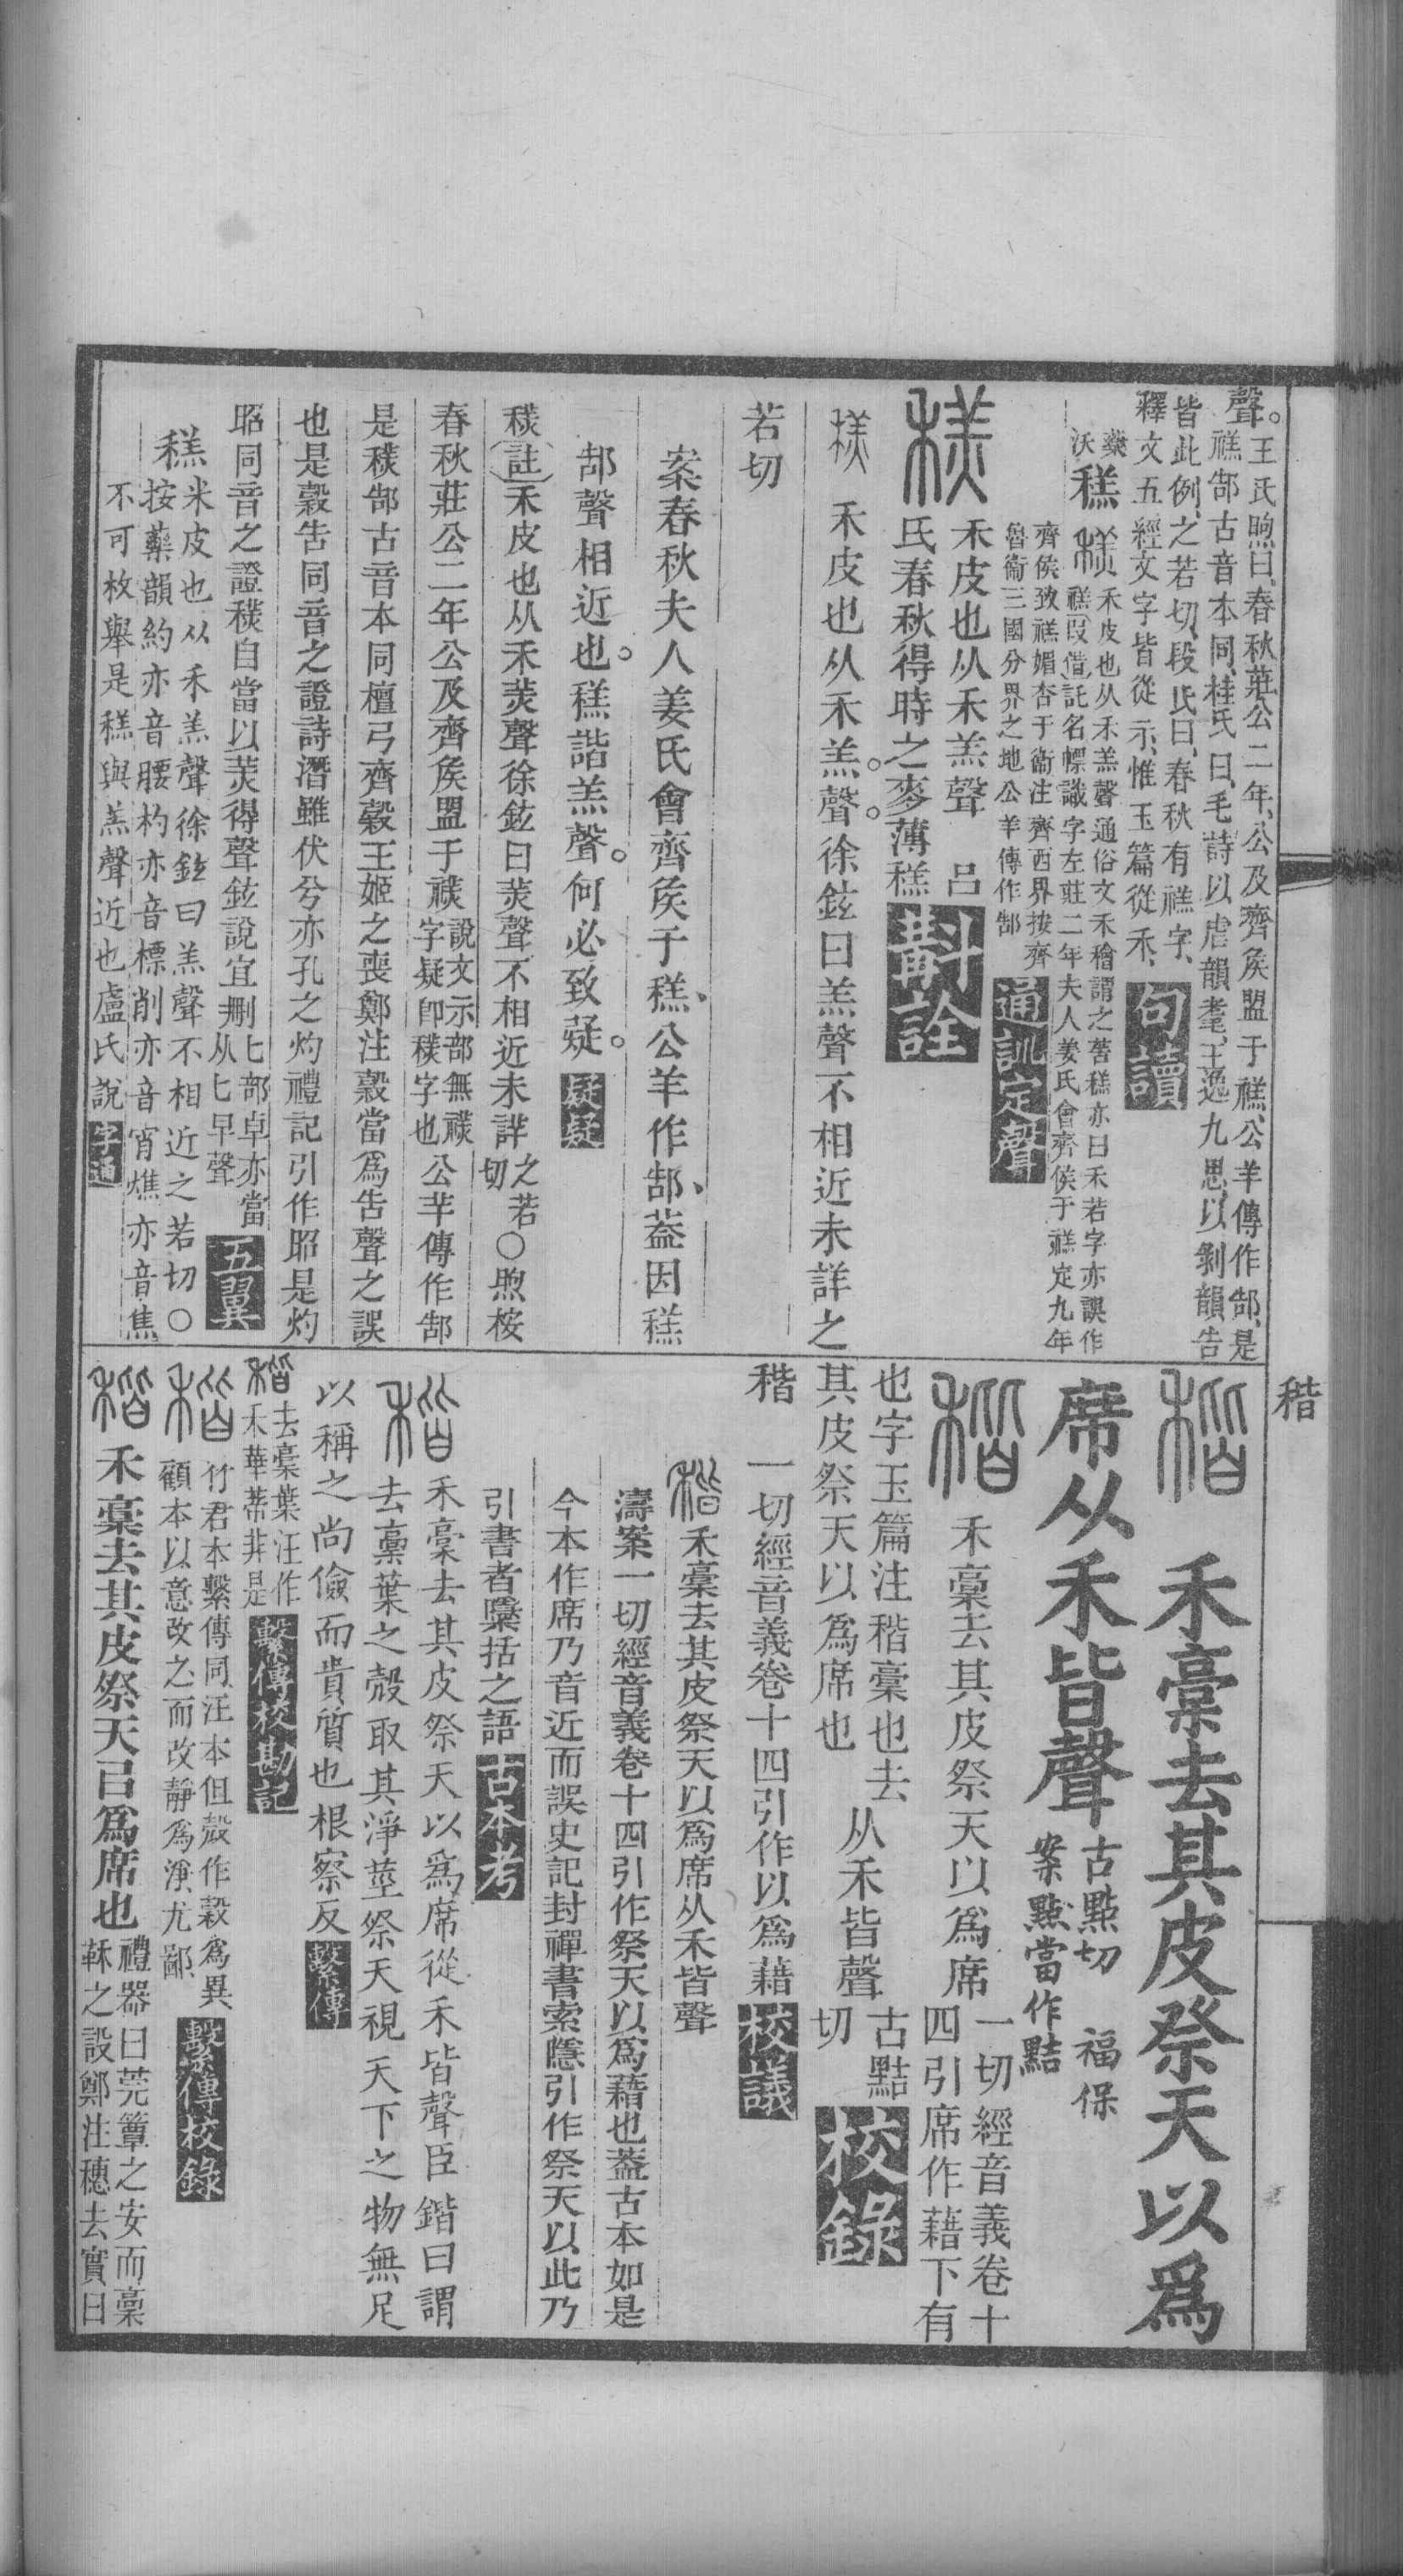 聲。王氏煦曰、春秋莊公二年、公及齊矦盟于禚、公羊傳作郜、是
禚郜古音本同、桂氏曰、毛詩以虐韻耄、王逸九思、以剝韻告
皆此例、之若切、段氏曰、春秋有禚字、
釋文五經文字皆從示、惟玉篇從禾、句讀
𥼚沃 穛 禾皮也从禾羔聲通俗文禾穭謂之䅵穛亦曰禾若字亦誤作
禚叚借託名幖識字左莊二年夫人姜氏會齊侯于禚定九年
齊侯致禚媚杏于衞注齊西界按齊
魯衞三國分界之地公羊傳作郜 通訓定聲
禾皮也从禾羔聲 呂
氏春秋得時之麥薄穛 斠詮
禾皮也从禾羔。聲。徐鉉曰羔聲不相近未詳之
若切
案春秋夫人姜氏會齊矦于穛、公羊作郜、葢因穛
郜聲相近也。穛諧羔聲。何必致疑。疑疑
穛(註)禾皮也从禾羙聲徐鉉曰羙聲不相近未詳之若切〇煦桉
春秋莊公二年公及齊矦盟于禚說文示部無禚字疑卽穛字也公羊傳作郜
是穛郜古音本同檀弓齊穀王姬之喪鄭注穀當爲告聲之誤
也是穀告同音之證詩潛雖伏兮亦孔之灼禮記引作昭是灼
昭同音之證穛自當以羙得聲鉉說宜刪匕部卓亦當从匕早聲 五翼
穛 米皮也从禾羔聲徐鉉曰羔聲不相近之若切〇
按藥韻約亦音腰杓亦音標削亦音宵燋亦音焦
不可枚舉是穛與羔聲近也盧氏說 字通
稭
禾稾去其皮祭天以爲
席从禾皆聲 古黠切 福保
案黠當作黠
禾稾去其皮祭天以爲席 一切經音義卷十
四引席作藉下有
也字玉篇注稭稾也去
其皮祭天以爲席也 从禾皆聲 古黠切 校錄
稭 一切經音義卷十四引作以爲藉 校議
禾稾去其皮祭天以爲席从禾皆聲
濤案一切經音義卷十四引作祭天以爲藉也葢古本如是
今本作席乃音近而誤史記封禪書索隱引作祭天以此乃
引書者櫽括之語 古本考
禾稾去其皮祭天以爲席從禾皆聲臣鍇曰謂
去稾葉之殼取其淨莖祭天視天下之物無足
以稱之尚儉而貴質也根察反 繫傳
去稾葉汪作
禾華蒂非是 繫傳校勘記
竹君本繫傳同汪本但殼作穀爲異
顧本以意改之而改靜爲淨尤鄙 繫傳校錄
禾稾去其皮祭天㠯爲席也 禮器曰莞簟之安而稾
鞂之設鄭注穗去實曰